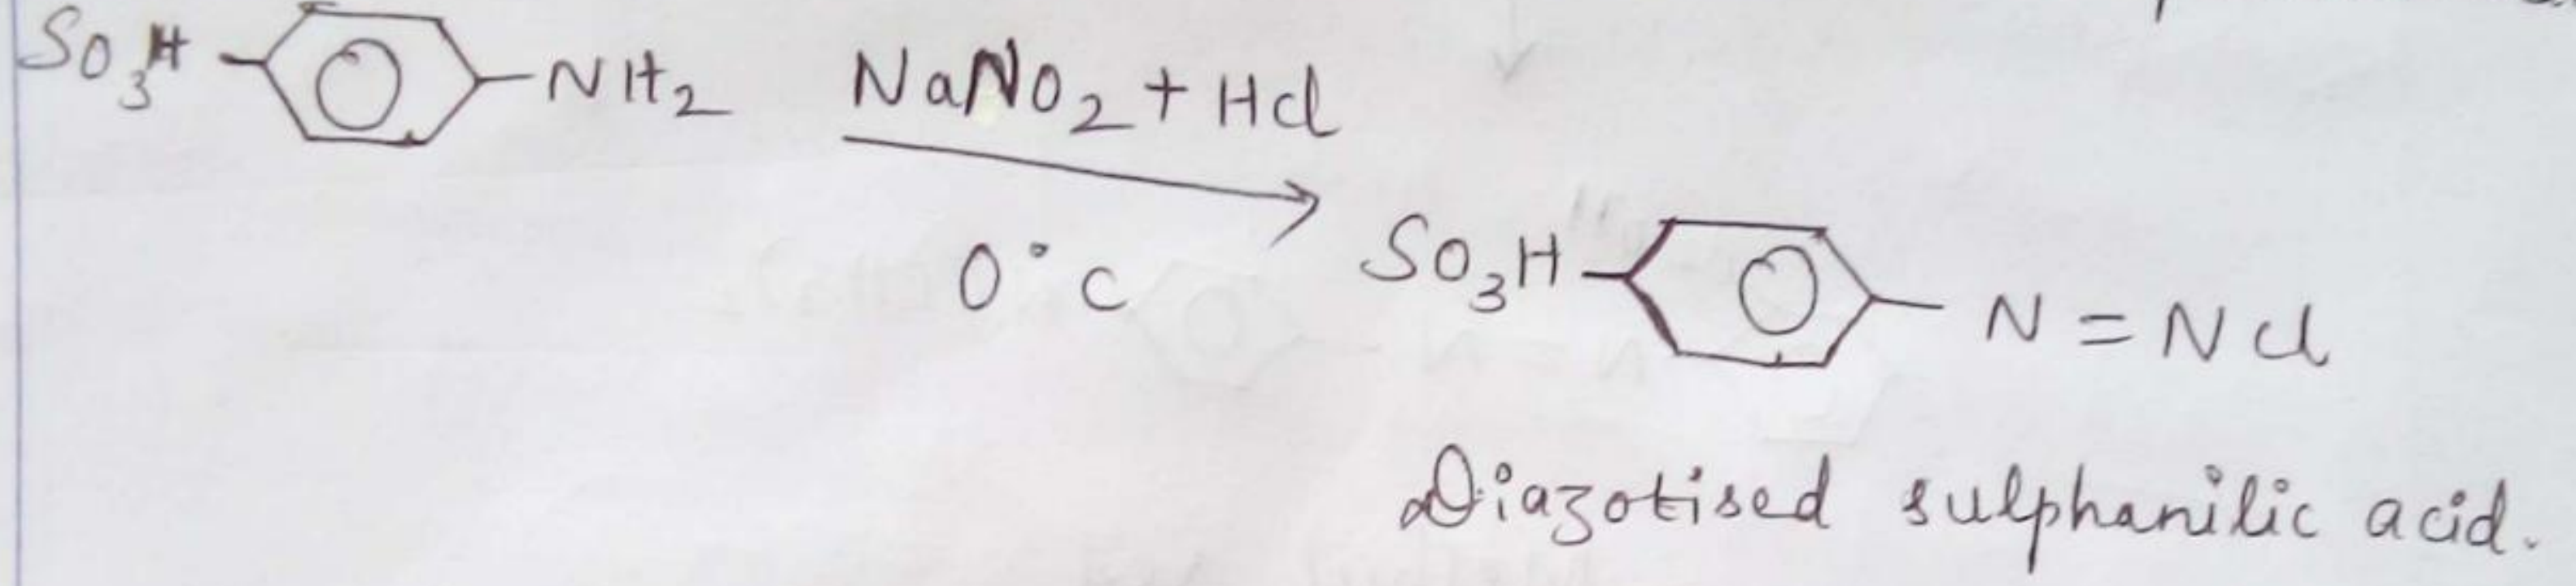 SO3H NH2 NaNO2 + HCl
0°C
SO3H N = NCl
Diazotised sulphanilic acid.